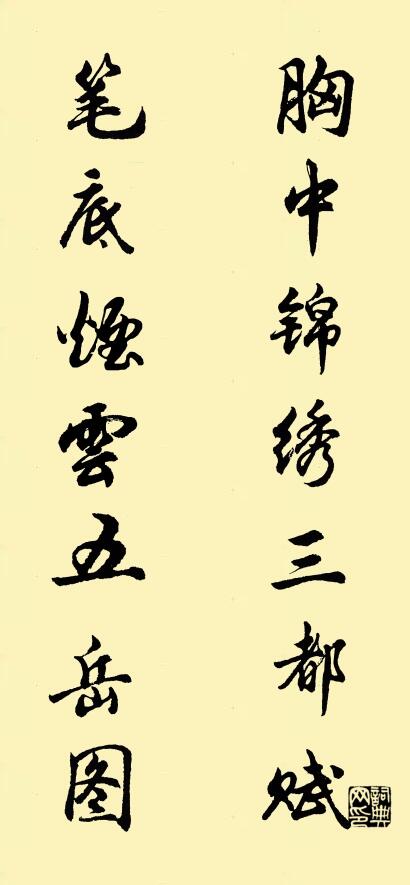 胸中锦绣三都赋
笔底煙雲五岳图
詞典网印